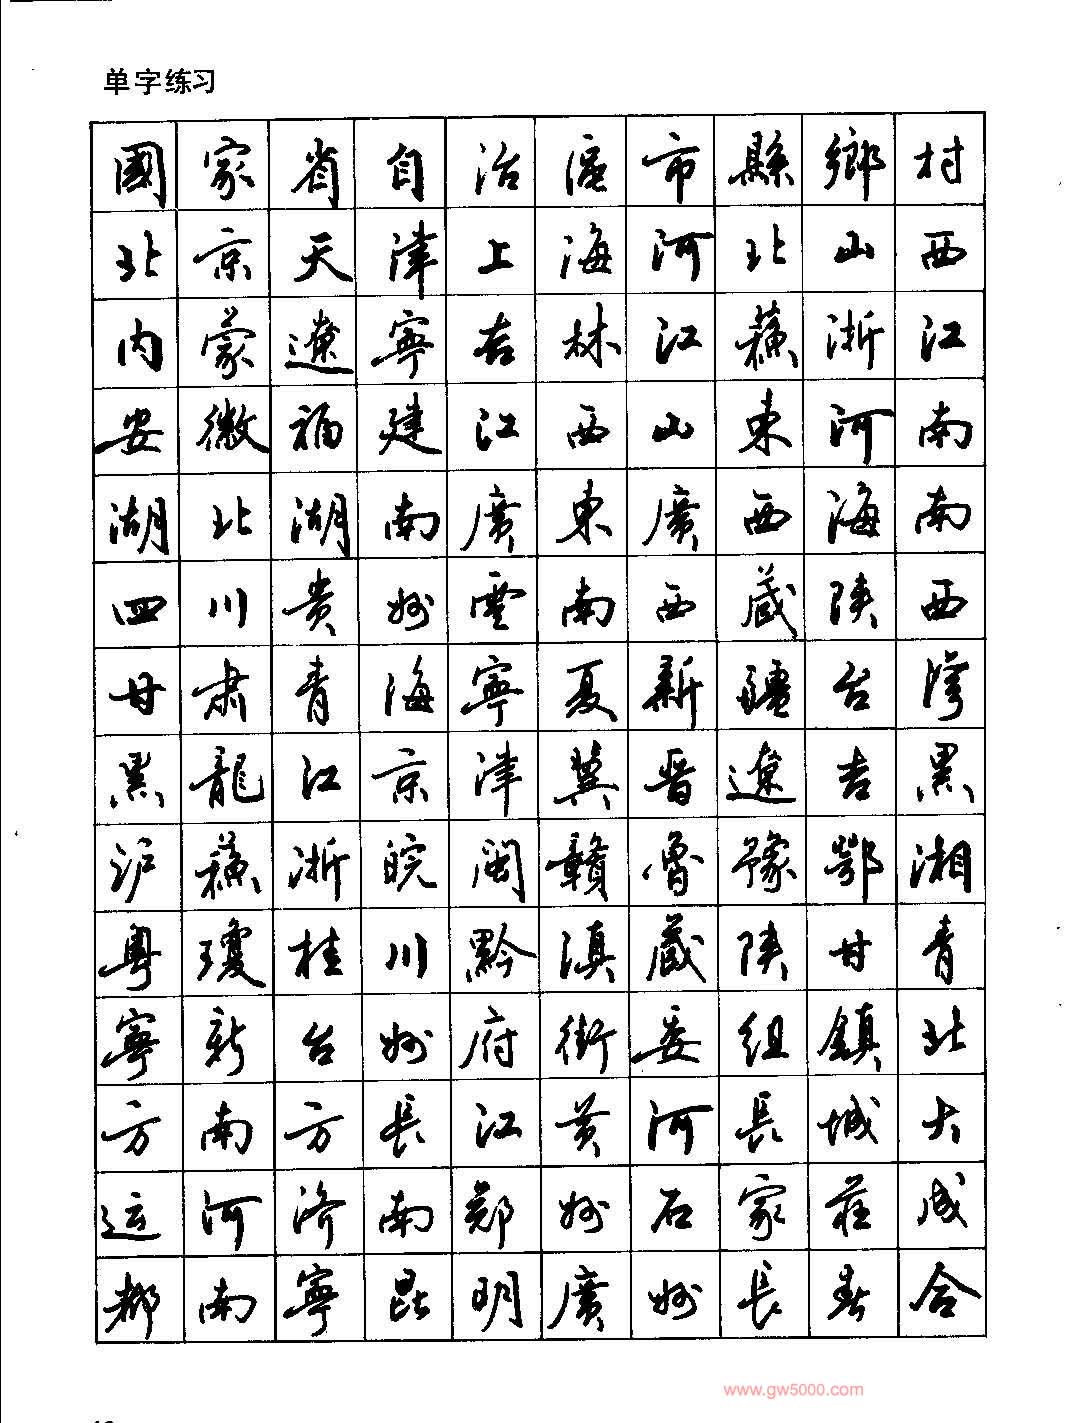 单字练习
國家省自治區市縣鄉村
北京天津上海河北山西
内蒙遼寧吉林江蘇浙江
安徽福建江西山東河南
湖北湖南廣東廣西海南
四川贵州雲南西藏陕西
甘肃青海寧夏新疆台灣
黑龍江京津冀晋遼吉黑
沪蘇浙皖闽贛魯豫鄂湘
粤瓊桂川黔滇藏陕甘青
寧新台州府街委組鎮北
方南方長江黄河長城大
运河济南郑州石家莊成
都南寧昆明廣州長春合
www.gw5000.com